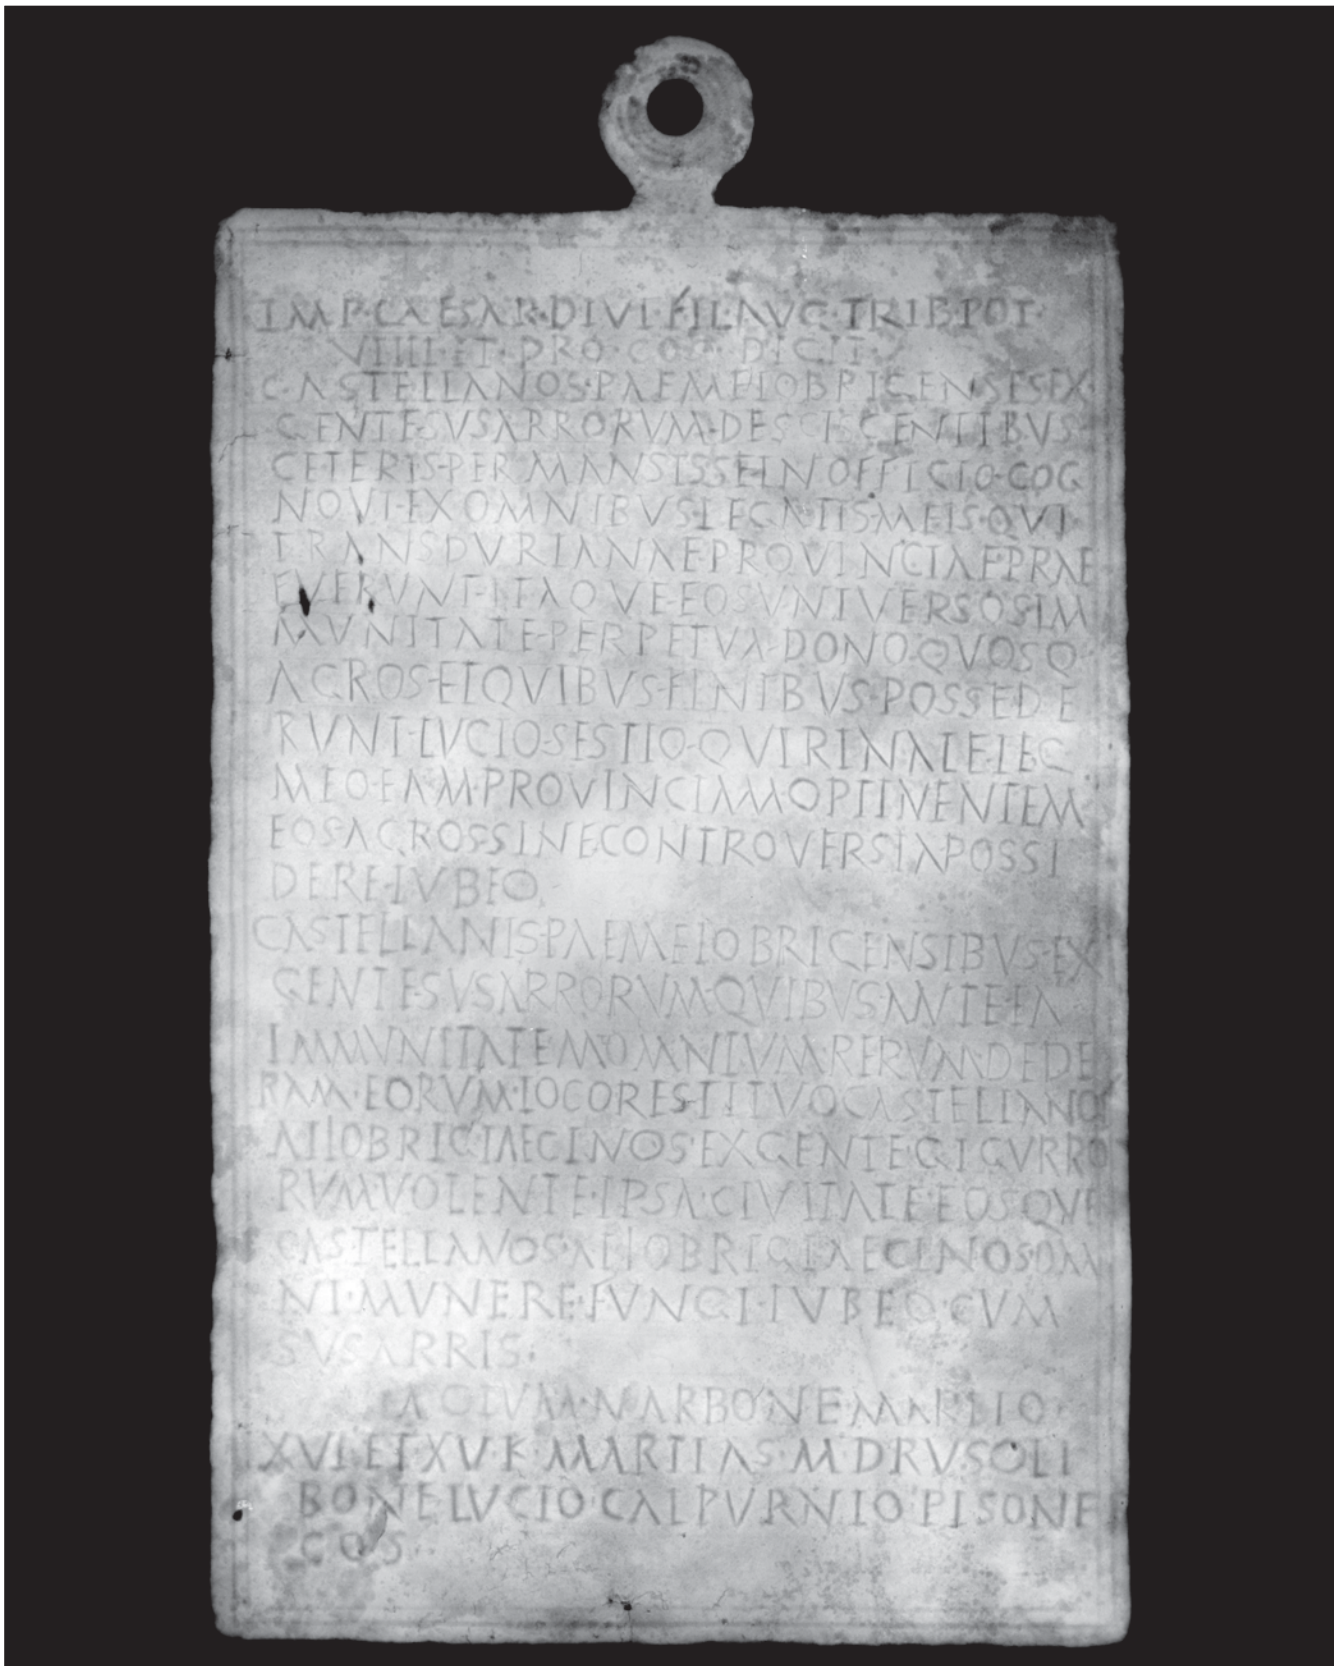 IMP·CAESAR·DIVI·FIL·AVG·TRIB·POT·
VIIII·ET·PRO·COS·DICIT·
CASTELLANOS·PAEMEIOBRIGENSES·EX·
GENTE·SVSARRORVM·DESCISCENTIBVS·
CETERIS·PERMANSISSE·IN·OFFICIO·COG
NOVI·EX·OMNIBVS·LEGATIS·MEIS·QVI·
TRANSDVRIANAE·PROVINCIAE·PRAE
FVERVNT·ITAQVE·EOS·VNIVERSOS·IM
MVNITATE·PERPETVA·DONO·QVOSQ·
AGROS·ET·QVIBVS·FINIBVS·POSSEDE
RVNT·LVCIO·SESTIO·QVIRINALE·LEG
MEO·EAM·PROVINCIAM·OPTINENTEM
EOS·AGROS·SINE·CONTROVERSIA·POSSI
DERE·IVBEO
CASTELLANIS·PAEMEIOBRIGENSIBVS·EX
GENTE·SVSARRORVM·QVIBVS·ANTE·EA
IMMVNITATEM·OMNIVM·RERVM·DEDE
RAM·EORVM·LOCO·RESTITVO·CASTELLANOS
AIIOBRIGIAECINOS·EX·GENTE·GIGVRRO
RVM·VOLENTE·IPSA·CIVITATE·EOSQVE
CASTELLANOS·AIIOBRIGIAECINOS·OM
NI·MVNERE·FVNGI·IVBEO·CVM·
SVSARRIS·
ACTVM·NARBONE·MARTIO·
XVI·ET·XV·K·MARTIAS·M·DRVSO·LI
BONE·LVCIO·CALPVRNIO·PISONE
COS